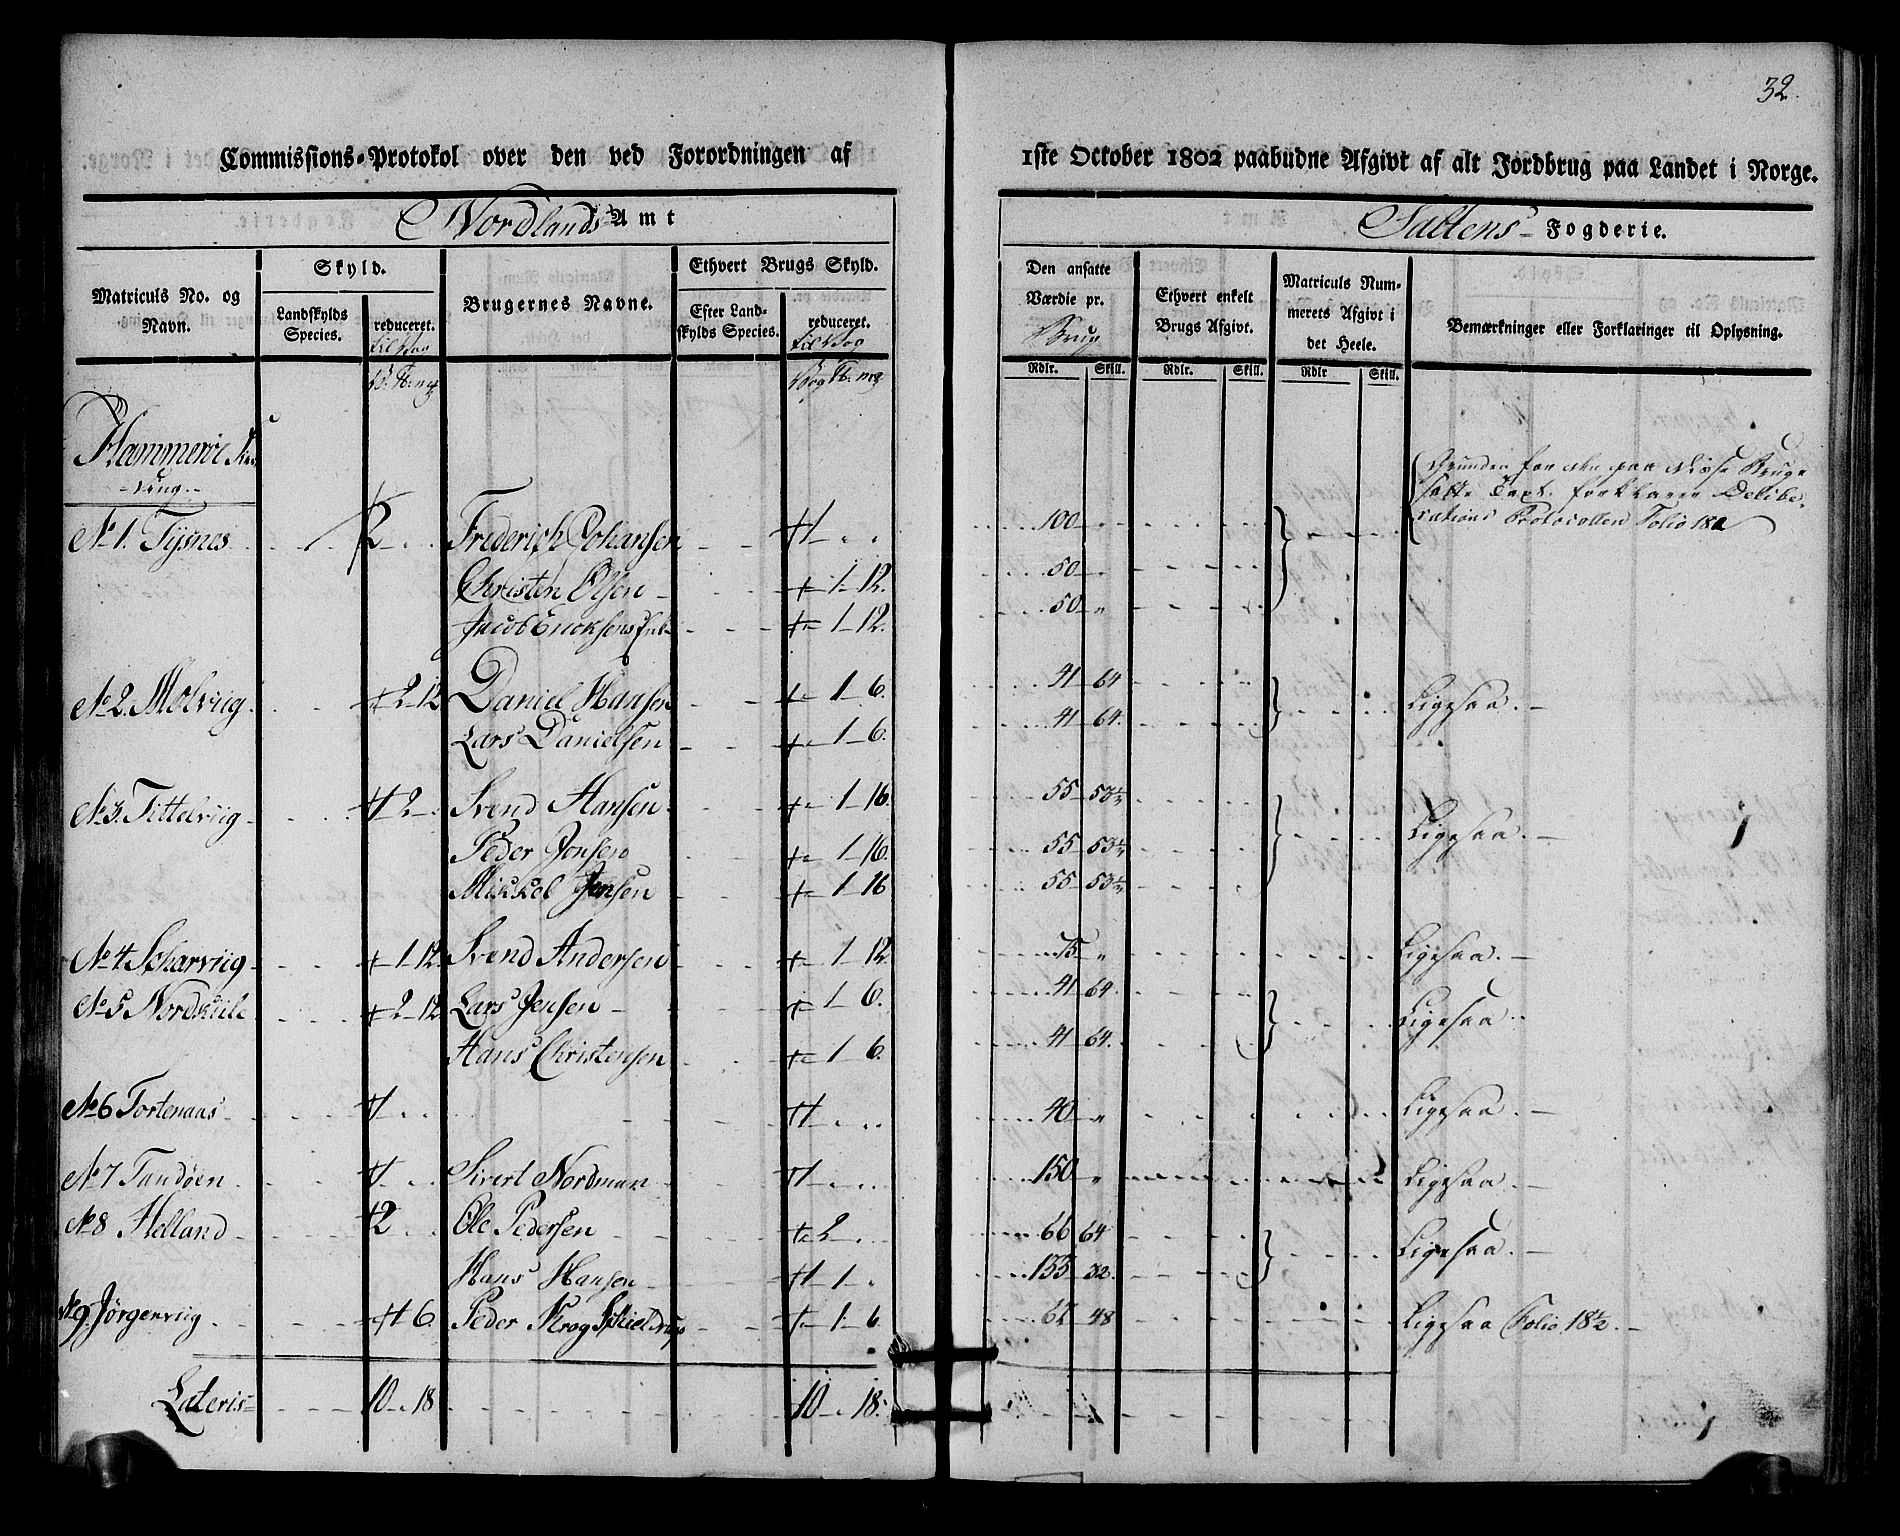 32.
Commissions-Protokol over den ved Forordningen af 1ste October 1802 paabudne Afgivt af alt Jordbrug paa Landet i Norge.
Nordlands Amt
Saltens Fogderie.
Matriculs No. og Navn.
Skyld.
Landskylds Species.
reduceret. til Wog
Brugernes Navne.
Ethvert Brugs Skyld.
Efter Landskylds Species.
reduceret. til Wog
Den ansatte Værdie pr. Brug
Ethvert enkelt Brugs Afgivt.
Matriculs Nummerets Afgivt i det Heele.
Bemærkninger eller Forklaringer til Oplysning.
Rdlr. Skill. Rdlr. Skill. Rdlr Skill.
Hammerøe
No 1. Tysnes 2 Frederich Johansen 1 100 "
Grunden for den paa disse Bruge satte Taxt. forklarer Deliberations Protocollen Folio 182
Christen Olsen 1 12 50 "
Jacob Ericksens 1 12. 50 "
No 2. Molviig 2 12 Daniel Hansen 1 6. 41 64 Ligesaa.
Lars Danielsen 1 6. 41 64.
No 3. Tittelviig 2 Svend Hansen 1 16. 55 53½ Ligesaa.
Peder Jonsen 1 16. 55 53½
Mikkel Jensen 1 16 55 53½
No 4 Scharviig 1 12. Svend Andersen 1 12. 75 " Ligesaa.
No 5 Nordskiile 2 12 Lars Jensen 1 6. 41 64. Ligesaa.
Hans Christensen 1 6. 41 64.
No 6 Tortenaas 1 1 40 " Ligesaa.
No 7 Tandøen 1 Sivert Nordman 1 150 " Ligesaa.
No 8 Helland 2 Ole Pedersen 2 66 64 Ligesaa.
Hans Hansen 1 133 32.
No 9 Jørgenviig 6 Peder Krog Schieldrup 1 6 62 48 Ligesaa Folio 182.
Lateris 10 18 10 18.